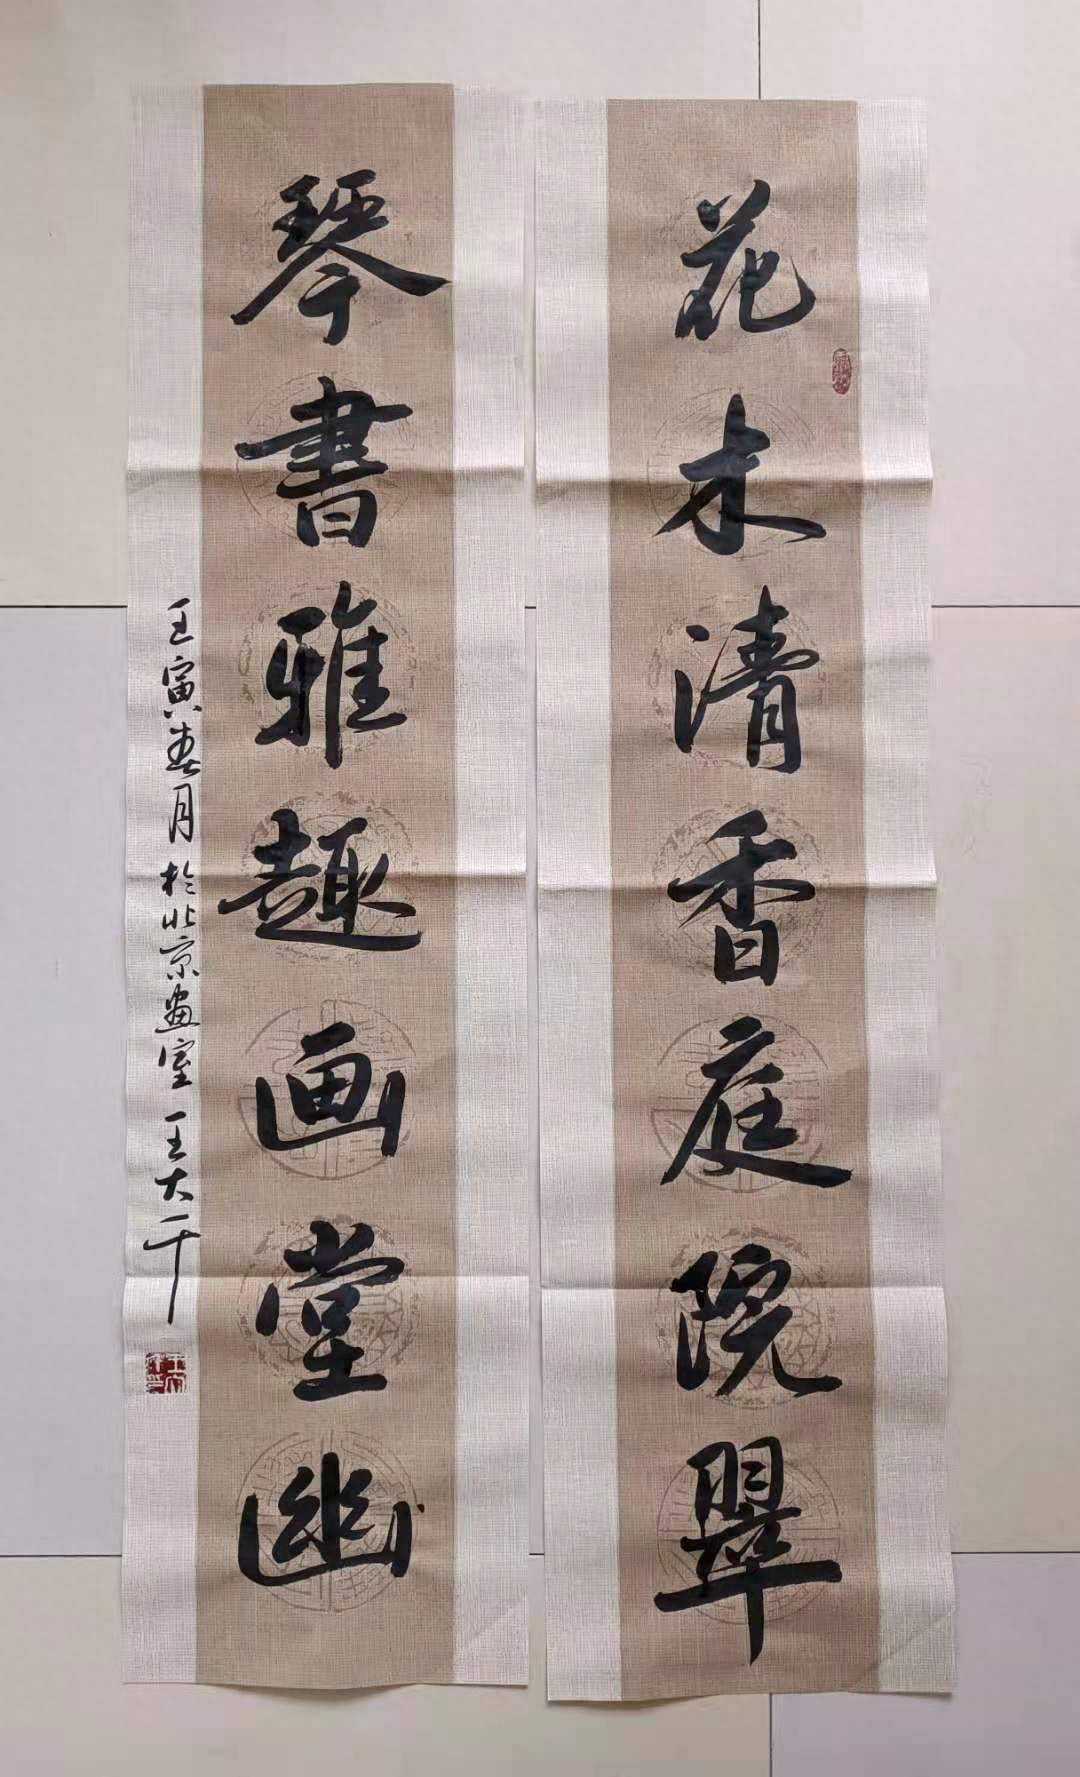 花木清香庭院翠
琴書雅趣画堂幽
壬寅春月於北京画室王大干